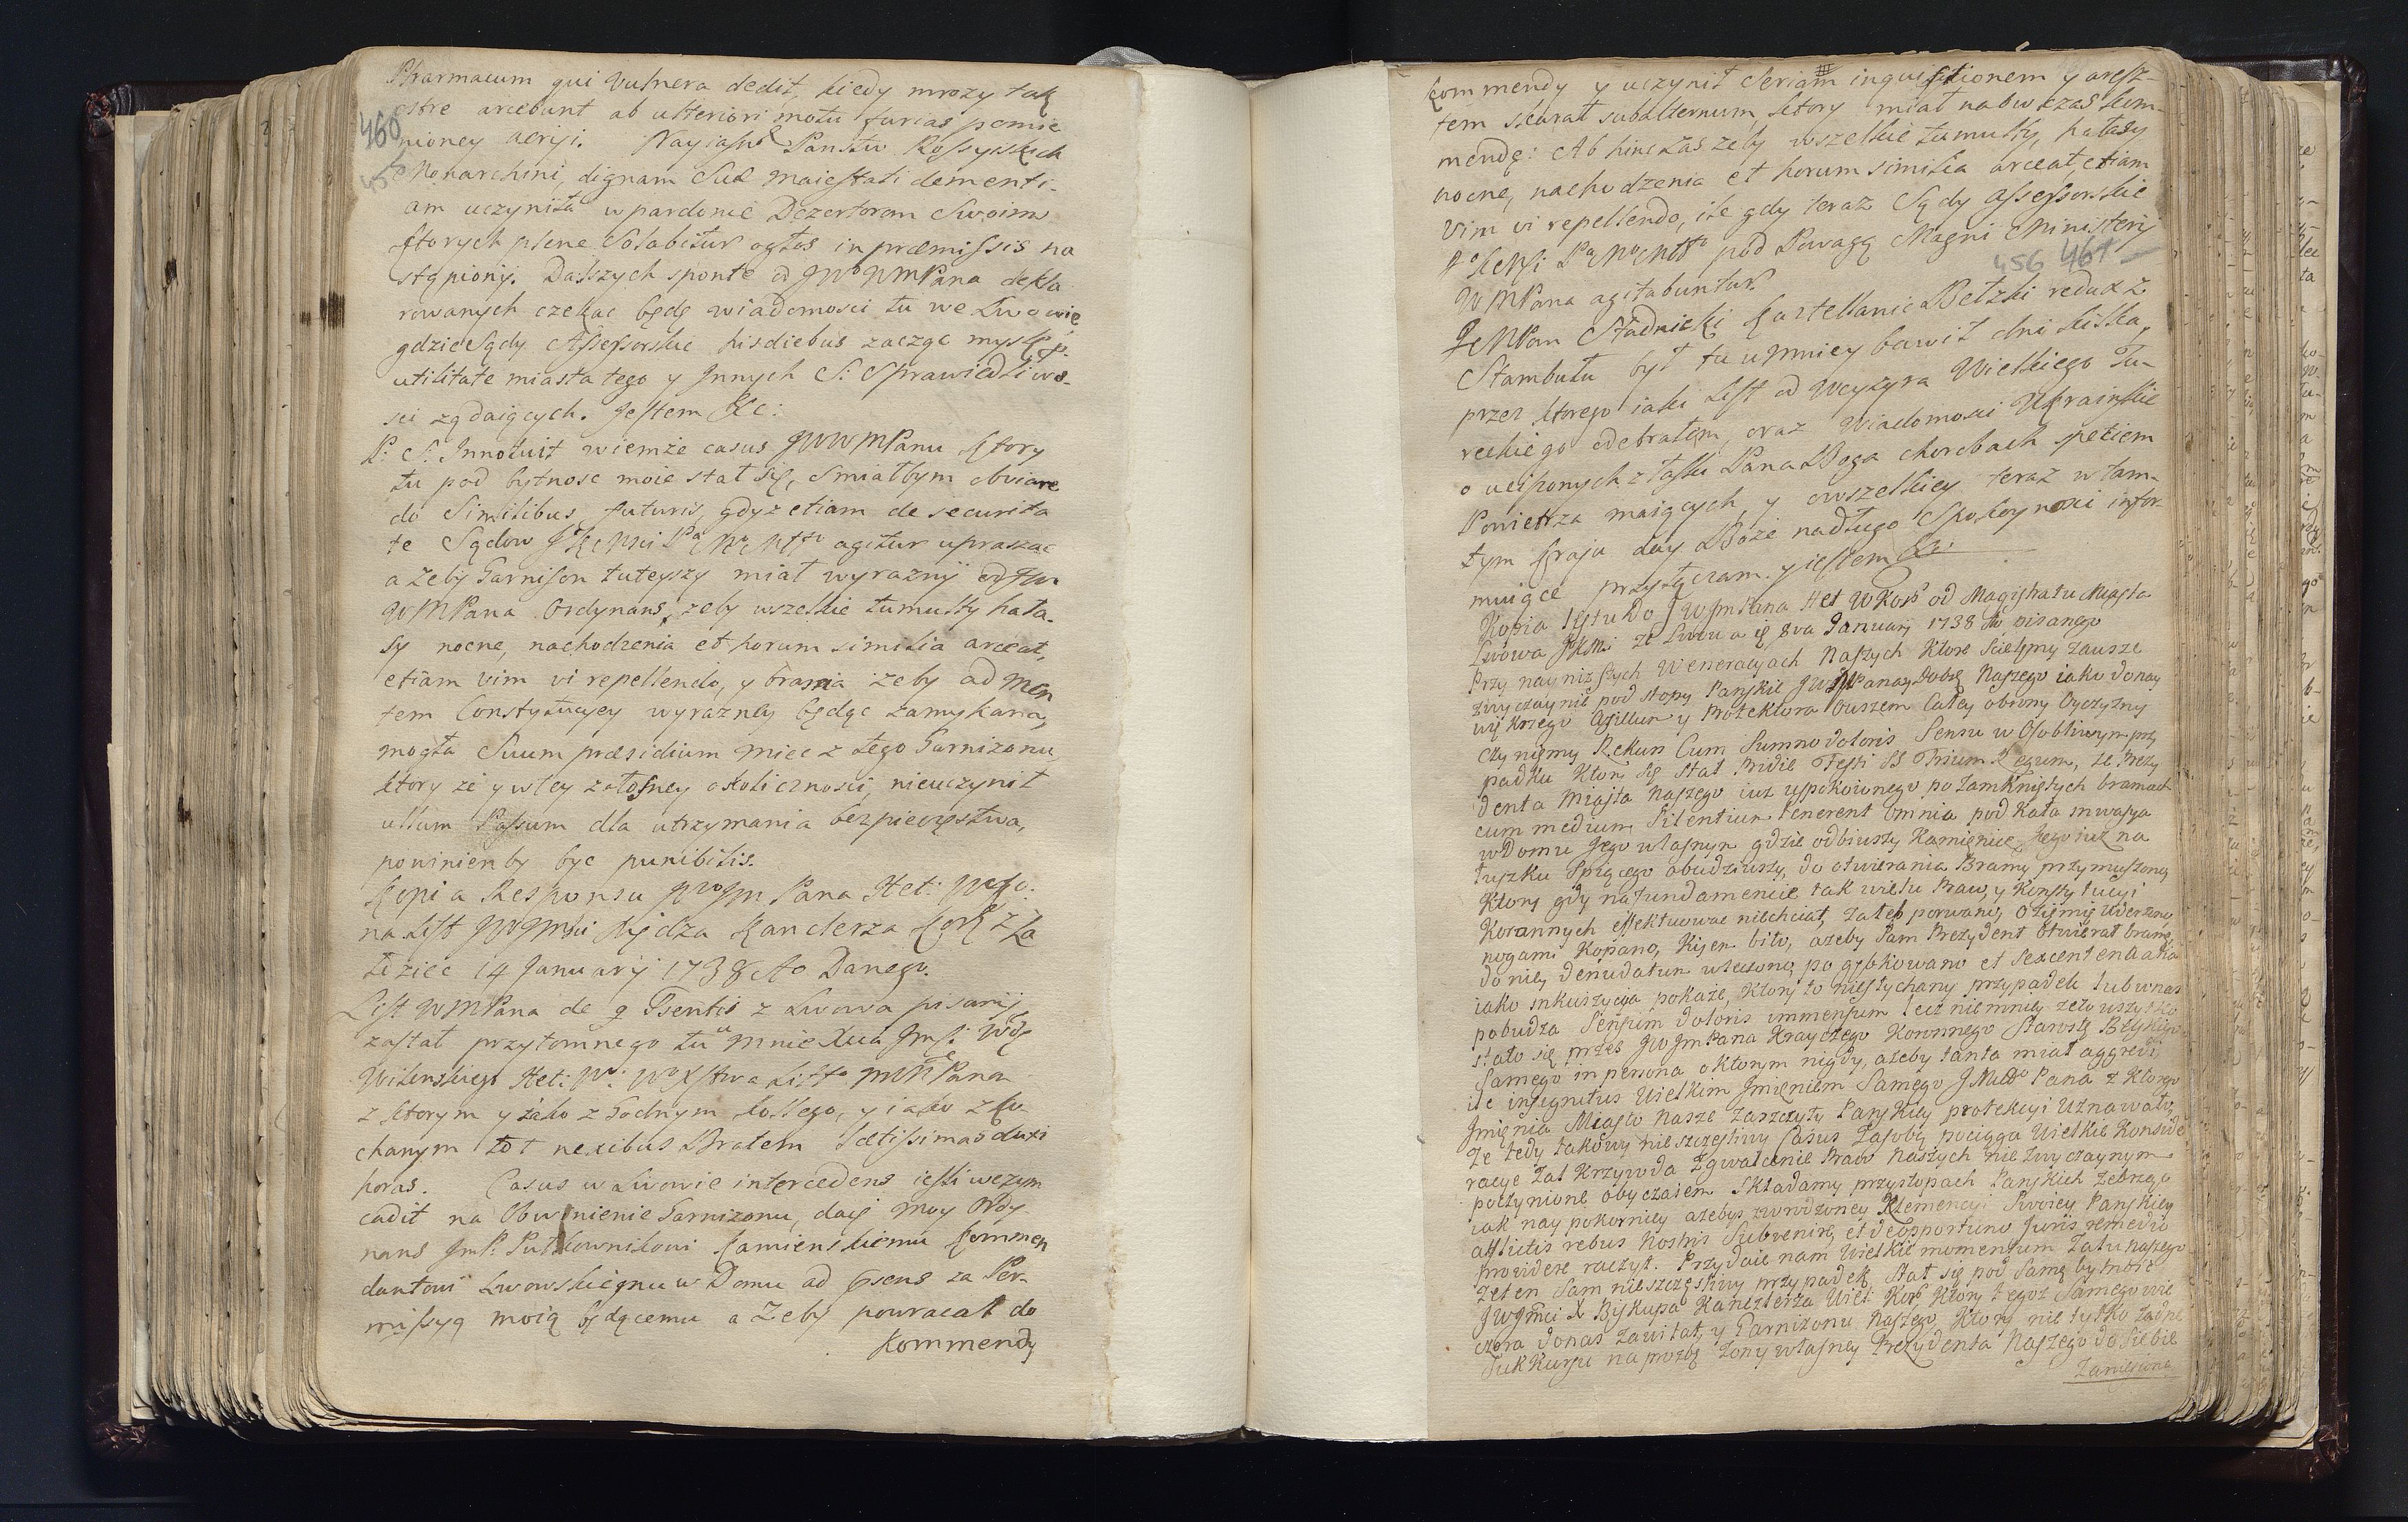 Pharmacum qui vulnera dedit, kiedy mrozy tak
ostre arcebunt ab ulteriori motu furias pomie
460
nioney aeriji. Nayiasn Panstw Rossyiskich
Monarchini, dignam Suæ Maiestati clementi-
am uczyniła w pardonie Dezertorom Swoim
ktorych plene Solabitur ogłos in præmissis na
stąpiony. Dalszych sponte od JWo WMPana dekla
rowanych czekac będę wiadomosci tu we Lwowie
gdzie Sądy Assessorskie hisdiebus zacząc myslę p.
utilitate miasta tego y Innych S: Sprawiedliwo-
sci ządaiących. Jestem &c:
P: S: Innotuit wiemże casus JWWMPanu ktory
tu pod bytnosc moie stał się, smiałbym obviare
do Similibus futuris, gdyż etiam de securita
te Sądow agitur upraszac
a Zeby Garnison tuteyszy miał wyraznÿ od JW
WMPana Ordynans, zeby wszelkie tumulty hała-
sy nocne, nachodzenia et horum similia arceat,
etiam vim vi repellendo, y brama żeby ad men
tem Constytucyey wyrazney będąc zamykana,
mogła Suum præsidium miec z tego Garnizonu,
ktory ze y w tey załosney okolicznosci, nieuczynił
ullum Passum dla utrzymania bezpieczęstwa,
powinien by byc punibilis.
Kopia Responsu JWo Jm Pana Het: WKo:
na List JWJmsci Xiędza Kanclerza Kor: z Za
łoziec 14 January 1738 Ao Danego.
List WMPana de 9 Psentis z Lwowa pisanÿ
zastał przytomnego tu u mnie Xcia Jmsci Wdę
Wilenskiego Het: Wo: Wo X Litto MMPana
z ktorym y iako z Godnym kollego, y iako z ko
chanym tot nexibus Bratem lætissimas duxi
horas. Casus w Lwowie intercedens iesli wezym
cadit na Obwinienie Garnizonu, daię moy Ordy
nans Jmsc: Pułkownikowi Kamienskiemu Kommen
dantowi Lwowskiemu w Domu ad Psens za Per-
missyą moią będącemu a Zeby powracał do
Kommendy
Kommendy y uczynił Seriam inquisitionem y aresz-
tem skarał subalternum, ktory miał nabwczas kom-
mendę: Ab hinc zas zeby wszelkie tumulty, hałasy
nocne, nachodzenia et horum similia arceat, etiam
vim vi repellendo, ile gdy teraz Sądy Assessorskie
pod Powagą Magni Ministerij
456 461
WMPana agitabuntur.
JeMPan Stadnicki Kasztellanic Bełzki redux z
Stambułu był tu u mniey bawił dni kilka,
przez ktorego iaki List od Wezyra Wielkiego Tu-
reckiego odebrałem, oraz Wiadomosci Ukrainskie
o ucisznych z łaski Pana Boga chorobach speciem
Powietrza maiących, y owszelkiey teraz w tam-
tym kraju day Boże nadługo Spokoynosci infor-
muiące przyłączam. y iestem &c:
Kopia Lystu do JWJmPana Het WKor od Magistratu Miasta
Lwowa JKMsci Ze Lwowa ię 8va January 1738 Ao pisanego
Przy naynizszych Weneracyach Naszych ktore Scielemy zausze
zwyczaynie pod stopy Panskie JWMPana y Dobrę Naszego iako do nay
więkrzego Azillum y Protektora Ouszem Całey obrony Oyczyzny
czyniemy Rekurs Cum Summo doloris Sensu w Osobliwym przy
padku ktory Się Stał Pridie Festi SS Trium Regum, Ze Prezy
denta Miasta Naszego iuż uspokoionego po zamkniętych bramach
cum medium Silentium tenerent omnia podkała inwasya
w Domu Jego własnym gdzie odbiwszy Kamienice, Jego iuż na
łuzku Spiącego obudziwszy, do otwierania Bramy przymuszony,
ktory gdy na fundamencie tak wielu Praw, y Konstytucyi
Korannych effektuowac niechciał, Zaleb porwany, O Ziemię Uderzony,
nogami Kopano, Kijem bito, azeby sam Prezydent otwierał bramę,
do niey denudatum wleczono, pogębkowano et sexcentena alia
iako inkwizycya pokaże, ktory to niesłychany przypadek lubwnas
pobudza Sensum doloris immensum lecz niemniey zeto uszystko
stało się przes JWJmPana Krayczego Koronnego Starostę Bełskiego
Samego in persona o ktorym nigdy, azeby tanta miał aggredi
ile insignitus Wielkim Jmieniem Samego JMWo Pana z ktorego
Jmienia Miasto nasze zaszczyty Panskiey protekcyi Uznawało,
Ze tedy takowy nieszczęsliwy Casus za Sobą pociąga Wielkie Konside
racye Zal Krzywda Zgwałcenie Praw Naszych nie zwyczaynym
poczynione obyczaiem Składamy przystopach Panskich Zebrząc
iak nay pokorniey azebys zwrodzoney Klemencyi Swoiey Panskiey
afflictis rebus nostris Subvenire, et de opportuno Juris remedio
providere raczył. Przydaie nam Wielkie momentum Zalu naszego
ze ten Sam nieszczęsliwy przypadek, Stał się pod Samą bytnosc
JWJmci X Biskupa Kanclerza Wiel: Kor, ktory tegoż Samego wie
czora donas Zawitał, y Garnizonu Naszego, ktory nie tylko zadne
Sukkursu na prozbę Zony własney Prezydenta Naszego do Siebie
Zaniesiona